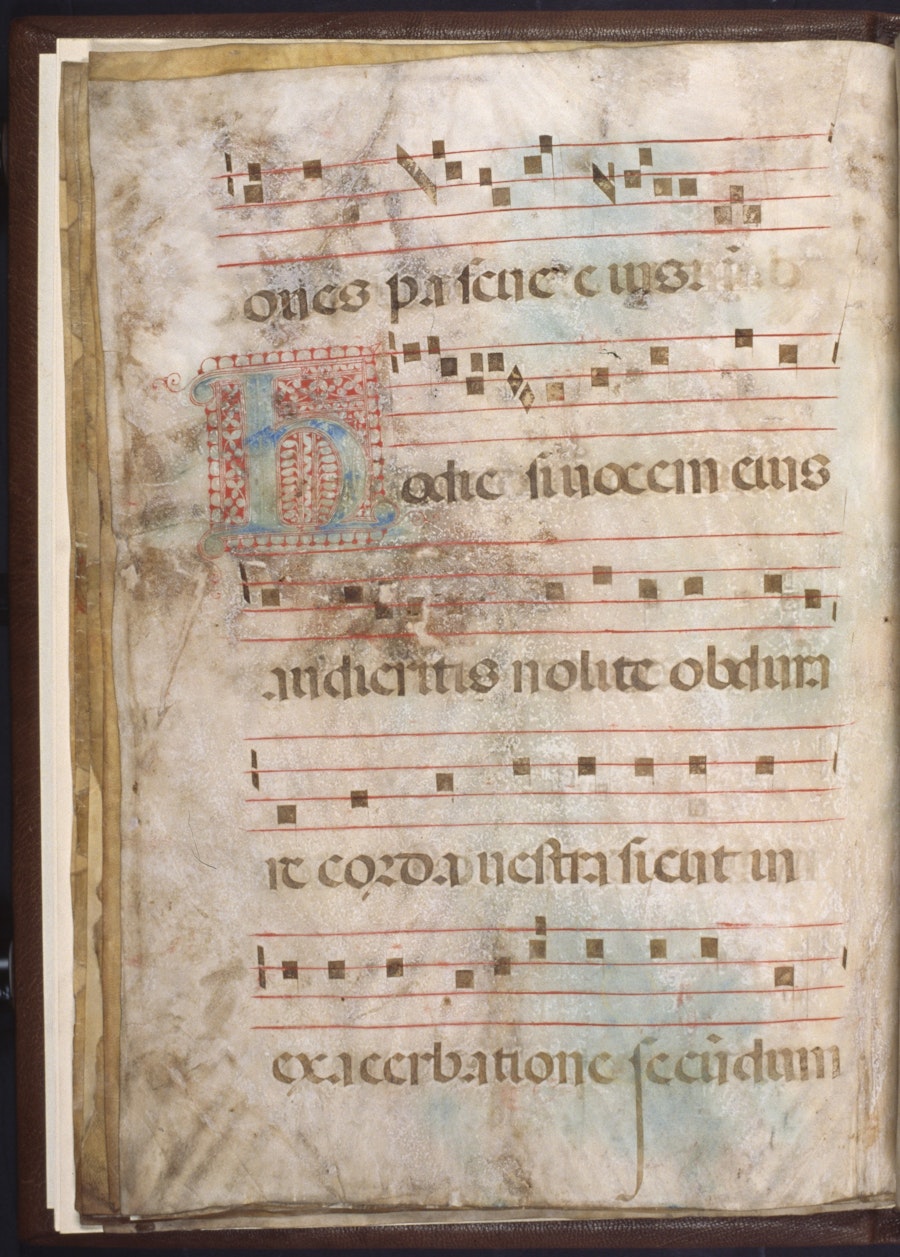 oues pascue eius
Hodie si uocem eius
audieritis nolite obdura
re corda uestra sicut in
exacerbatione secūdum